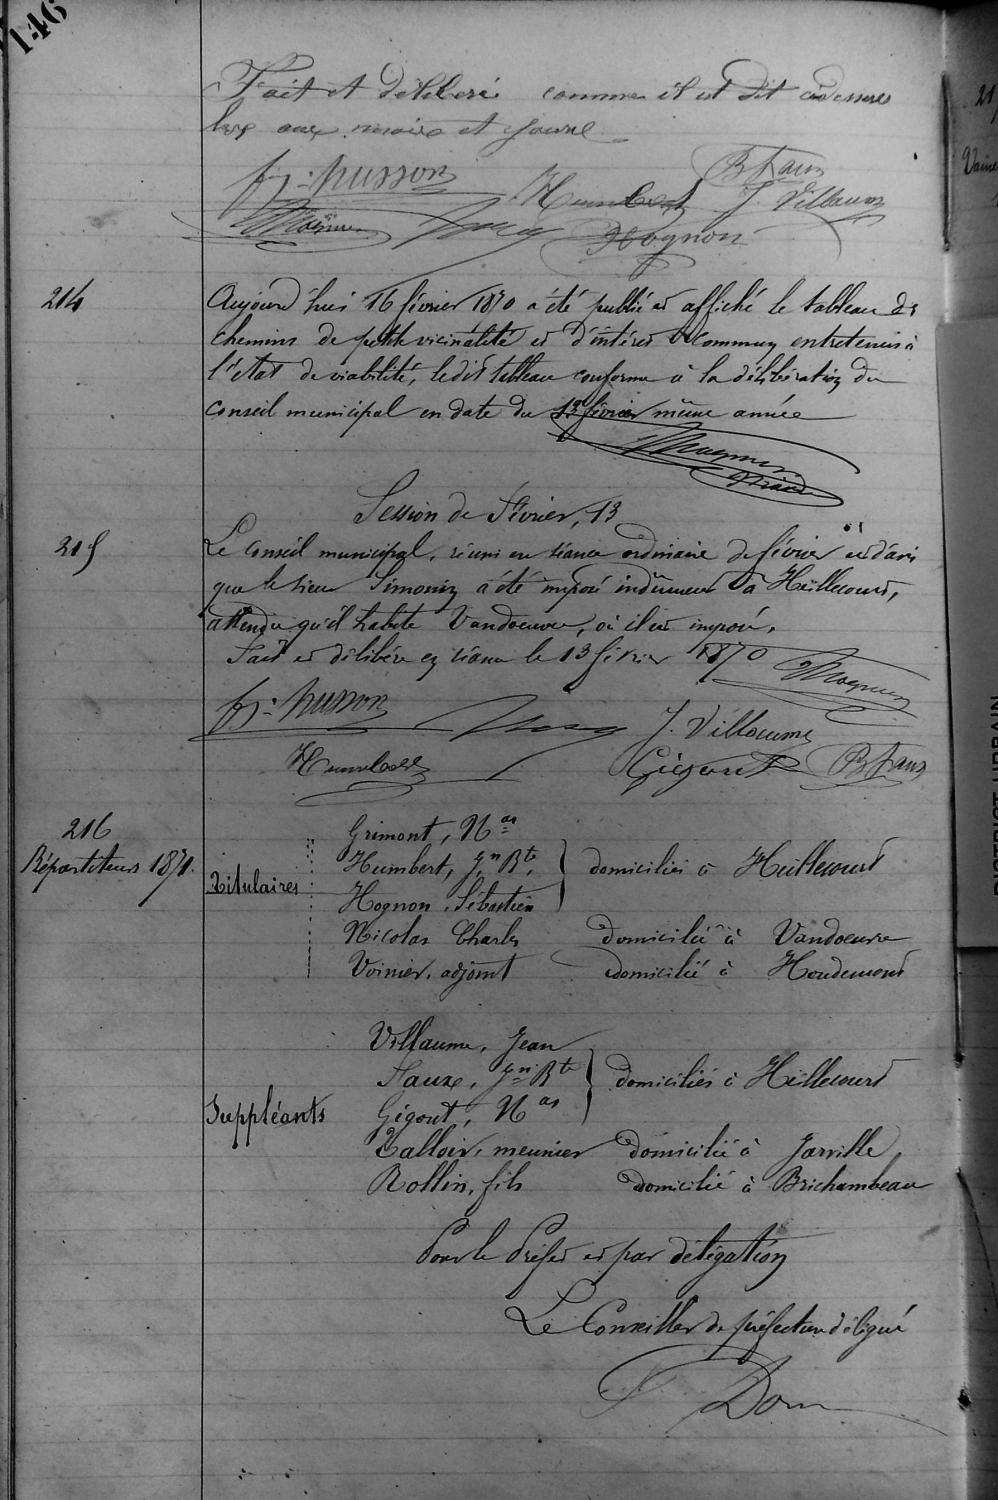 146
Fait et délibéré comme il est dit ci dessus
les an, mois et jour
fs: husson
B Faux
Humbert J. Villaume
Hognon
214
Aujourd'hui 16 février 1870 a été publié et affiché le tableau des
chemins de petite vicinalité et d'intérêt commun entretenus à
l'état de viabilité, ledit tableau conforme à la délibération du
Conseil municipal en date du 13 février même année
Session de Février, 13
215
Le Conseil municipal, réuni en séance ordinaire de février est d'avis
que le sieur Simonin a été imposé indûment à Heillecourt,
attendu qu'il habite Vandoeuvre, où il est imposé.
Fait et délibéré en séance le 13 février 1870
fs: husson
J. Villaume
Humbert Gigout B Faux
216
Répartiteurs 1871.
Titulaires
Grimont, Nas
Humbert, Jn Bte,
Hognon, Sébastien
domiciliés à Heillecourt
Nicolas Charles domicilié à Vandoeuvre
Voinier, adjoint domicilié à Houdemont
Suppléants
Villaume, Jean
Faux, Jn Bte
Gigout, Nas
domiciliés à Heillecourt
Talloir, meunier domicilié à Jarville
Rollin, fils domicilié à Brichambeau
Pour le Préfet et par délégation
Le Conseiller de préfecture délégué